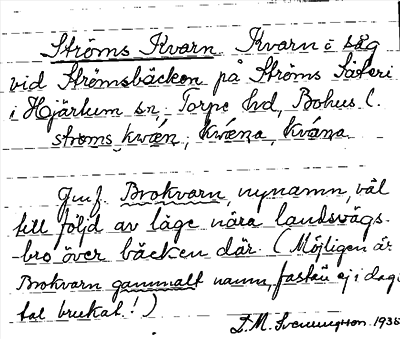 Ströms Kvarn Kvarn o såg
vid Strömsbäcken på Ströms Säteri
i Hjärtum sn, Torpe hd, Bohus l.
ströms kwæn, kwæna, kvána
Jmf. Brokvarn, nynamn, väl
till följd av läge nära landsvägs-
-bro över bäcken där. (Möjligen är
Brokvarn gammalt namn, fastän ej i dag
tal brukat!)
D.M. Svenungsson. 1935